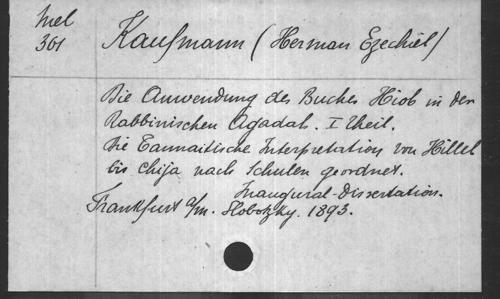 Mel
361
Kaufmann (Herman Ezechiel)
Die Anwendung des Buches Hiob in der
Rabbinischen Agadah. I Theil.
Die Tannaitische Interpretation von Hillel
bis Chija nach Schulen geordnet.
Inaugural-Dissertation.
Frankfurt a/m. Slobotzky. 1893.